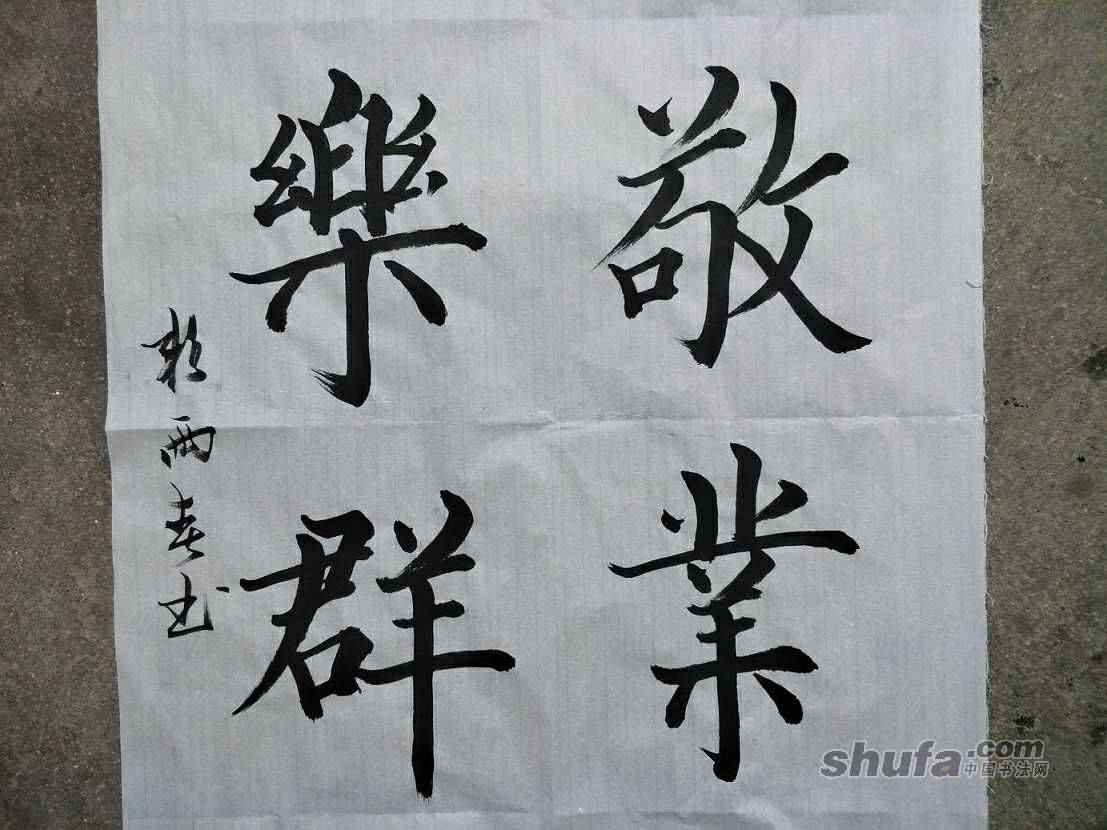 敬業
樂群
雨春书
shufa.com
中国书法网